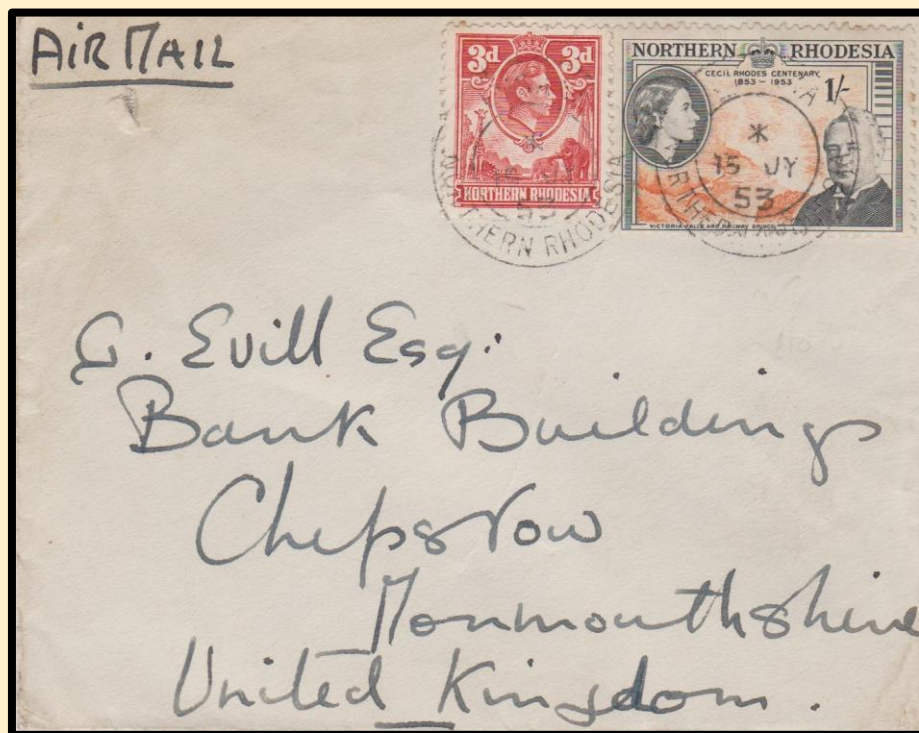 AIR MAIL
3d 3d
NORTHERN RHODESIA
NORTHERN RHODESIA
CECIL RHODES CENTENARY
1853 - 1953
1/-
VICTORIA FALLS AND RAILWAY BRIDGE
NORTHERN RHODESIA
15 JY
53
G. Evill Esq.
Bank Buildings
Chepstow
Monmouthshire
United Kingdom.